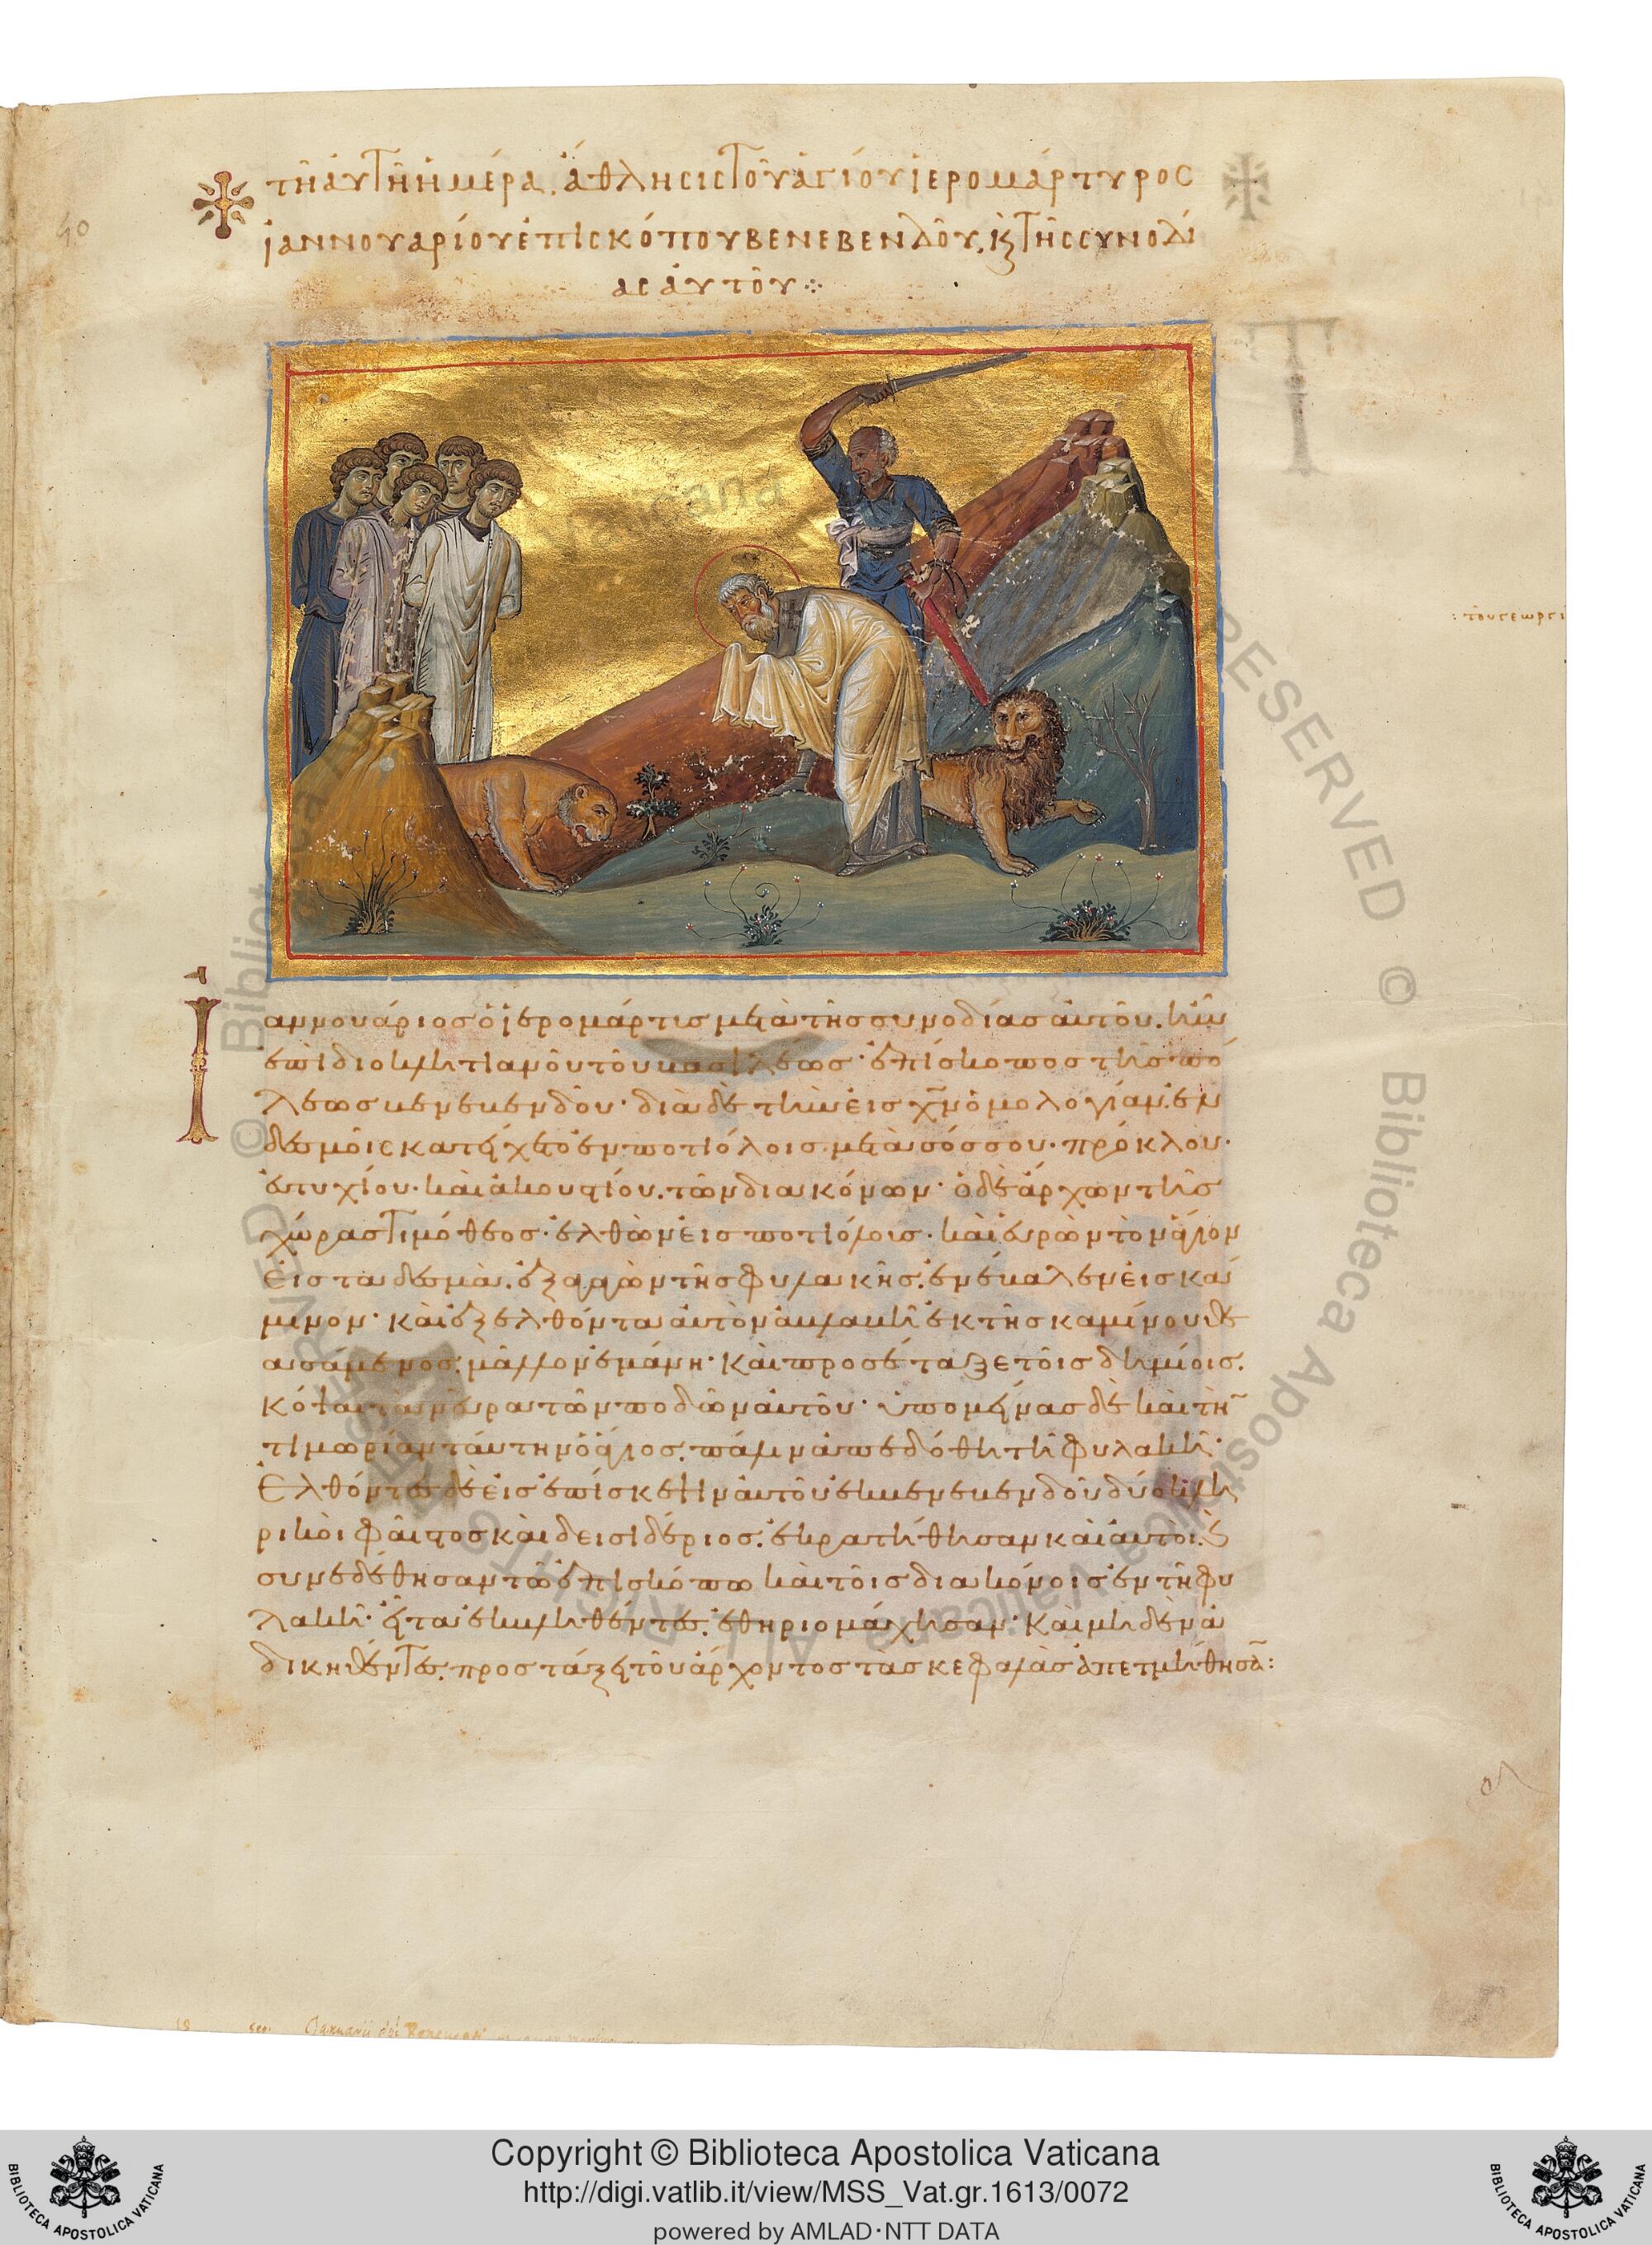 τῆ ἀυτῆ ἡμέρα. ἄθλησις τοῦ ἁγίου ἱερομάρτυρος
ἰαννουαρίου ἐπισκόπου βενεβενδοῦ. κ̀ τῆς συνοδί
ας ἀυτοῦ
: τοῦ γεωργι
Ἰαννουάριος ὁ ἱερομάρτυς μετὰ τῆς συνοδίας ἀυτοῦ. ἦν
ἐπὶ διοκλητιανοῦ τοῦ βασιλέως· ἐπίσκοπος τῆς πό
λεως βενεβενδοῦ· διὰ δὲ τὴν εἰς χν̄ ὁμολογίαν. ἐν
δεσμοῖς κατείχετο ἐν ποτιόλοις· μετὰ σόσσου· πρόκλου·
ἐυτυχίου· καὶ ἀκουτίου. τῶν διακόνων· ὁ δὲ ἄρχων τῆς
χώρας τιμόθεος· ἐλθὼν εἰς ποτιόλοις· καὶ ἑυρὼν τὸν ἅγιον
εἰς τὰ δεσμὰ. ἐξαγαγὼν τῆς φυλακῆς. ἐνέβαλεν εἰς κά
μινον· καὶ ἐξελθόντα ἀυτὸν ἀβλαβῆ ἐκ τῆς καμίνου θε
ασάμενος. μᾶλλον ἐμάνη· καὶ προσέταξε τοῖς δημίοις.
κόψαι τὰ νεῦρα τῶν ποδῶν ἀυτοῦ· ὑπομείνας δὲ καὶ τὴ̄
τιμωρίαν ταύτην ὁ ἅγιος. πάλιν ἀπεδόθη τῆ φυλακῆ·
Ἐλθόντες δὲ εἰς ἐπίσκεψιν ἀυτοῦ ἐκ βενεβενδοῦ δύο κλη
ρικοὶ φαῖστος καὶ δεισιδέριος. ἐκρατήθησαν καὶ ἀυτοὶ. κ̀
συνεδέθησαν τῶ ἐπισκόπω καὶ τοῖς διακόνοις ἐν τῆ φυ
λακῆ· εἶτα ἐκβληθέντες. ἐθηριομάχησαν· καὶ μηδὲν ἀ
δικηθέντες. προστάξει τοῦ ἄρχοντος τὰς κεφαλὰς ἀπετμήθησᾱ:
Copyright © Biblioteca Apostolica Vaticana
http://digi.vatlib.it/view/MSS_Vat.gr.1613/0072
powered by AMLAD·NTT DATA
BIBLIOTECA APOSTOLICA VATICANA
BIBLIOTECA APOSTOLICA VATICANA